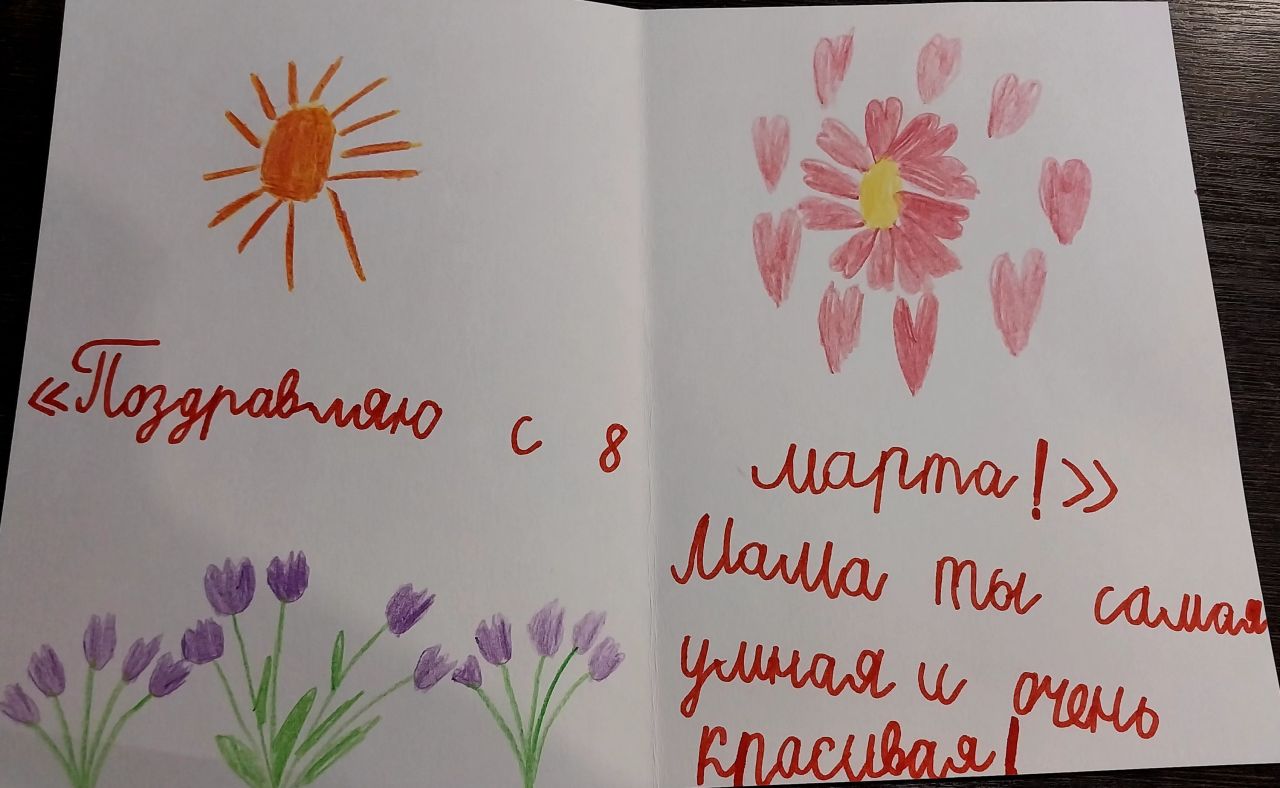 «Поздравляю с 8
марта!»
Мама ты самая
умная и очень
красивая!